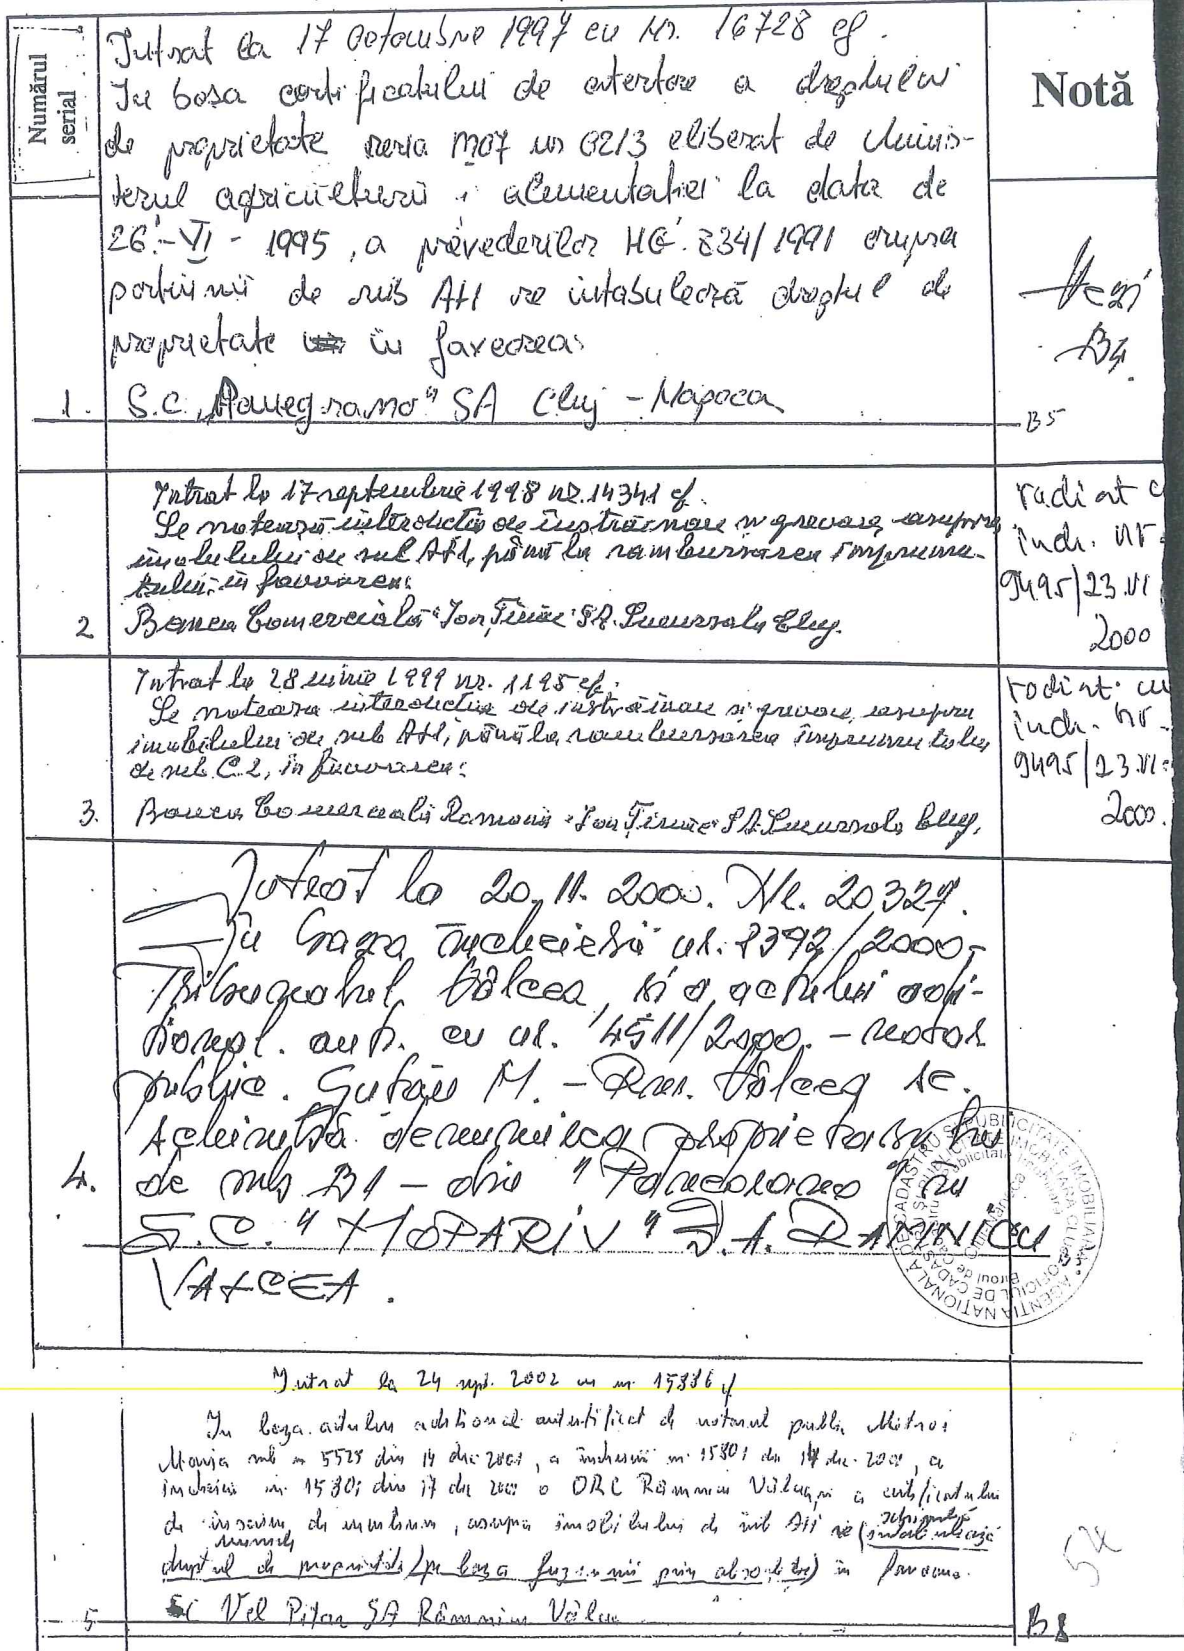 Numărul
serial
Notă
Intrat la 17 Octombrie 1997 cu Nr. 16728 cf.
In baza certificatului de atestare a dreptului
de proprietate seria M07 nr 0213 eliberat de Minis-
terul agriculturii i alimentatiei la data de
26-VI-1995, a prevederilor HG. 834/1991 asupra
portiunii de sub A+1 se intabulează dreptul de
proprietate în favoarea:
1. S.C. "Panegrano" SA Cluj-Napoca
Vezi
B4.
B5
Intrat la 17 septembrie 1998 nr. 14341 cf.
Se notează interdictia de înstrăinare si grevare asupra
imobilului de sub A+1, până la rambursarea împrumu-
tului, in favoarea:
2 Banca Comercială "Ion Țiriac" SA. Sucursala Cluj.
radiat c
inch. nr
9495/23.VI
2000
Intrat la 28 iunie 1999 nr. 1195 cf.
Se noteaza interdictia de instrăinare si grevare asupra
imobilului de sub A+1, până la rambursarea împrumutului
de sub C.2, in favoarea:
3. Banca Comercială Romană "Ion Țiriac" SA. Sucursala Cluj.
radiat cu
inch. nr.
9495/23.VI.
2000.
Intrat la 20.11.2000. Nr. 20327.
In baza incheierii nr. 8392/2000-
Tribunalul Vâlcea, si a actului adi-
tional. aut. cu nr. 4511/2000.-notar
public. M. - Rm. Vâlcea se.
schimbă denumirea proprietarului
de sub B1 - din " " in
4. S.C. "MOPARIV" S.A. RAMNICU
VALCEA.
AGENȚIA NAȚIONALĂ DE CADASTRU ȘI PUBLICITATE IMOBILIARĂ
Intrat la 24 sept. 2002 cu nr. 15886 cf
In baza actului aditional autentificat de notarul public Mitroi
sub nr 5528 din 14 dec 2001, a incheierii nr. 15801 din dec. 2001, a
incheierii nr. 15801 din 17 dec 2001 a ORC Râmnicu Vâlcea, si a certificatului
de inscriere de mentiuni, asupra imobilului de sub A+1 se (intabulează
schimbă
dreptul de proprietate/pe baza fuziunii prin absorbtie) in favoarea.
5. SC Vel Pitar SA Râmnicu Vâlcea
54
B8